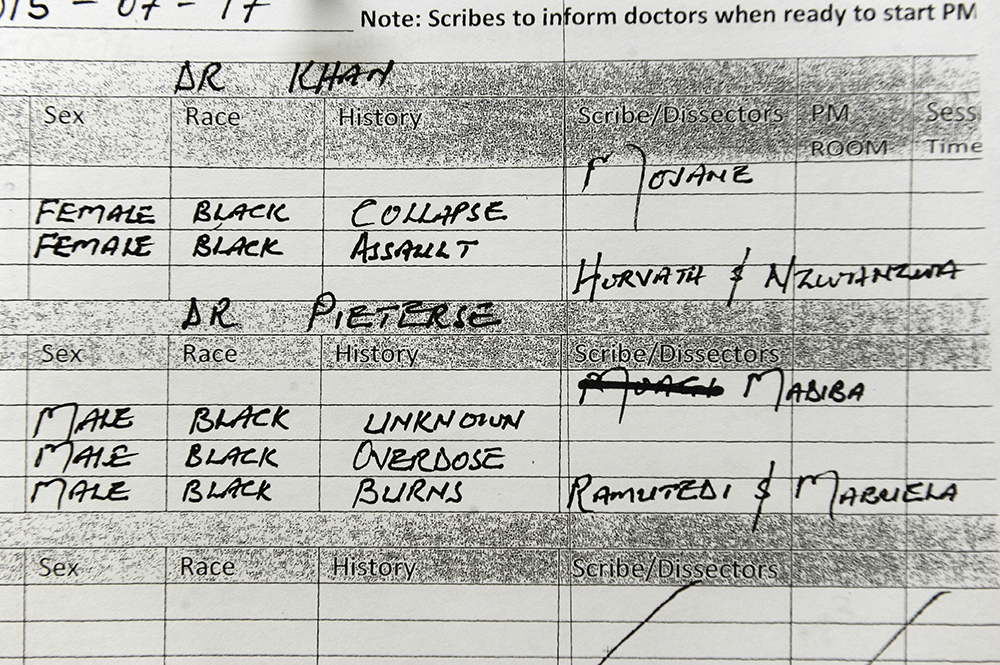 015-07-17
Note: Scribes to inform doctors when ready to start PM
DR KHAN
Sex Race History Scribe/Dissectors PM ROOM Sess Time
MOJANE
FEMALE BLACK COLLAPSE
FEMALE BLACK ASSAULT
HORVATH &
DR PIETERSE
Sex Race History Scribe/Dissectors
MADIBA
MALE BLACK UNKNOWN
MALE BLACK OVERDOSE
MALE BLACK BURNS RAMUTEDI & MABUELA
Sex Race History Scribe/Dissectors